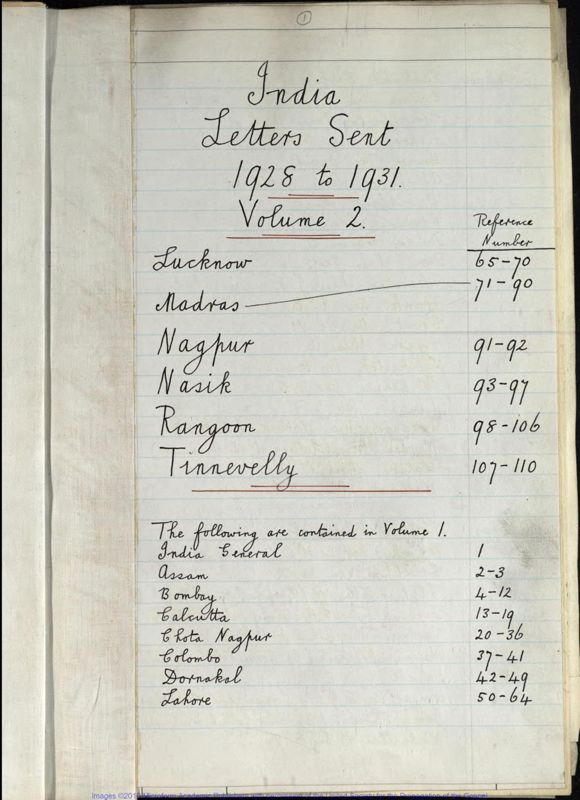 1
India
Letters Sent
1928 to 1931.
Volume 2.
Reference
Number
Lucknow 65-70
Madras 71-90
Nagpur 91-92
Nasik 93-97
Rangoon 98-106
Tinnevelly 107-110
The following are contained in Volume 1.
India General 1
Assam 2-3
Bombay 4-12
Calcutta 13-19
Chota Nagpur 20-36
Colombo 37-41
Dornakal 42-49
Lahore 50-64
Images ©201 Microform Academic Publishers with permission of the United Society for the Propagation of the Gospel